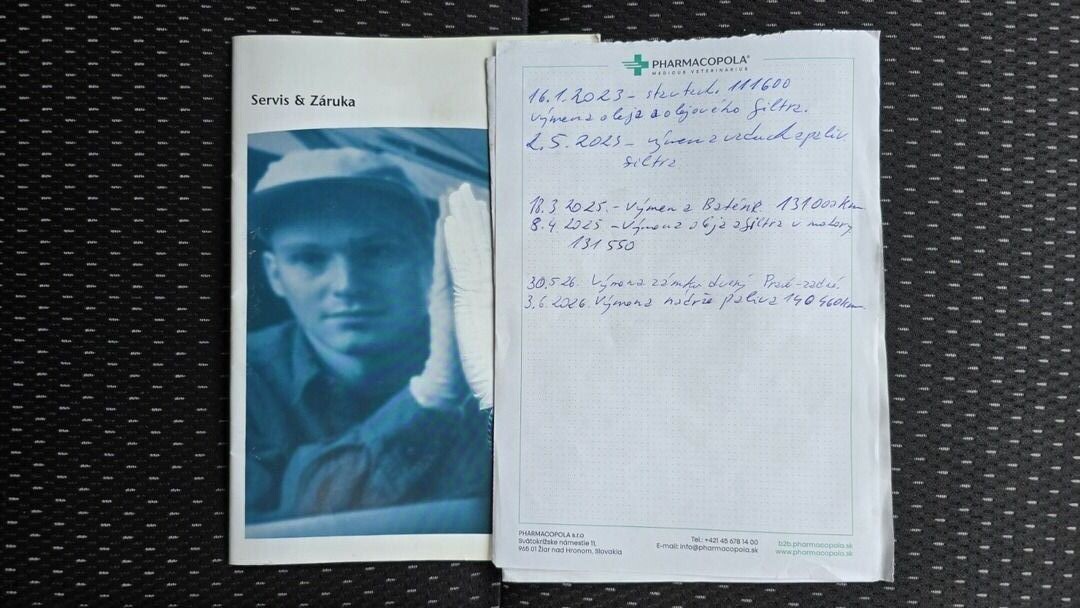 Servis & Záruka
PHARMACOPOLA®
MEDICUS VETERINARIUS
16.1.2023 - stav tach. 111600
Výmena oleja a olejového filtra.
2.5.2023 - výmena vzduch a paliv.
filtra
18.3 2025. - Výmena Batérie 131 000 km
8.4.2025 - Výmena oleja a filtra v motory
131 550
30.5.26. Výmena zámku dverí Pravé-zadné
3.6.2026. Výmena nadrže paliva 140 460 km.
PHARMACOPOLA s.r.o
Svätokrížske námestie 11,
965 01 Žiar nad Hronom, Slovakia
Tel.: +421 45 678 14 00
E-mail: info@pharmacopola.sk
b2b.pharmacopola.sk
www.pharmacopola.sk